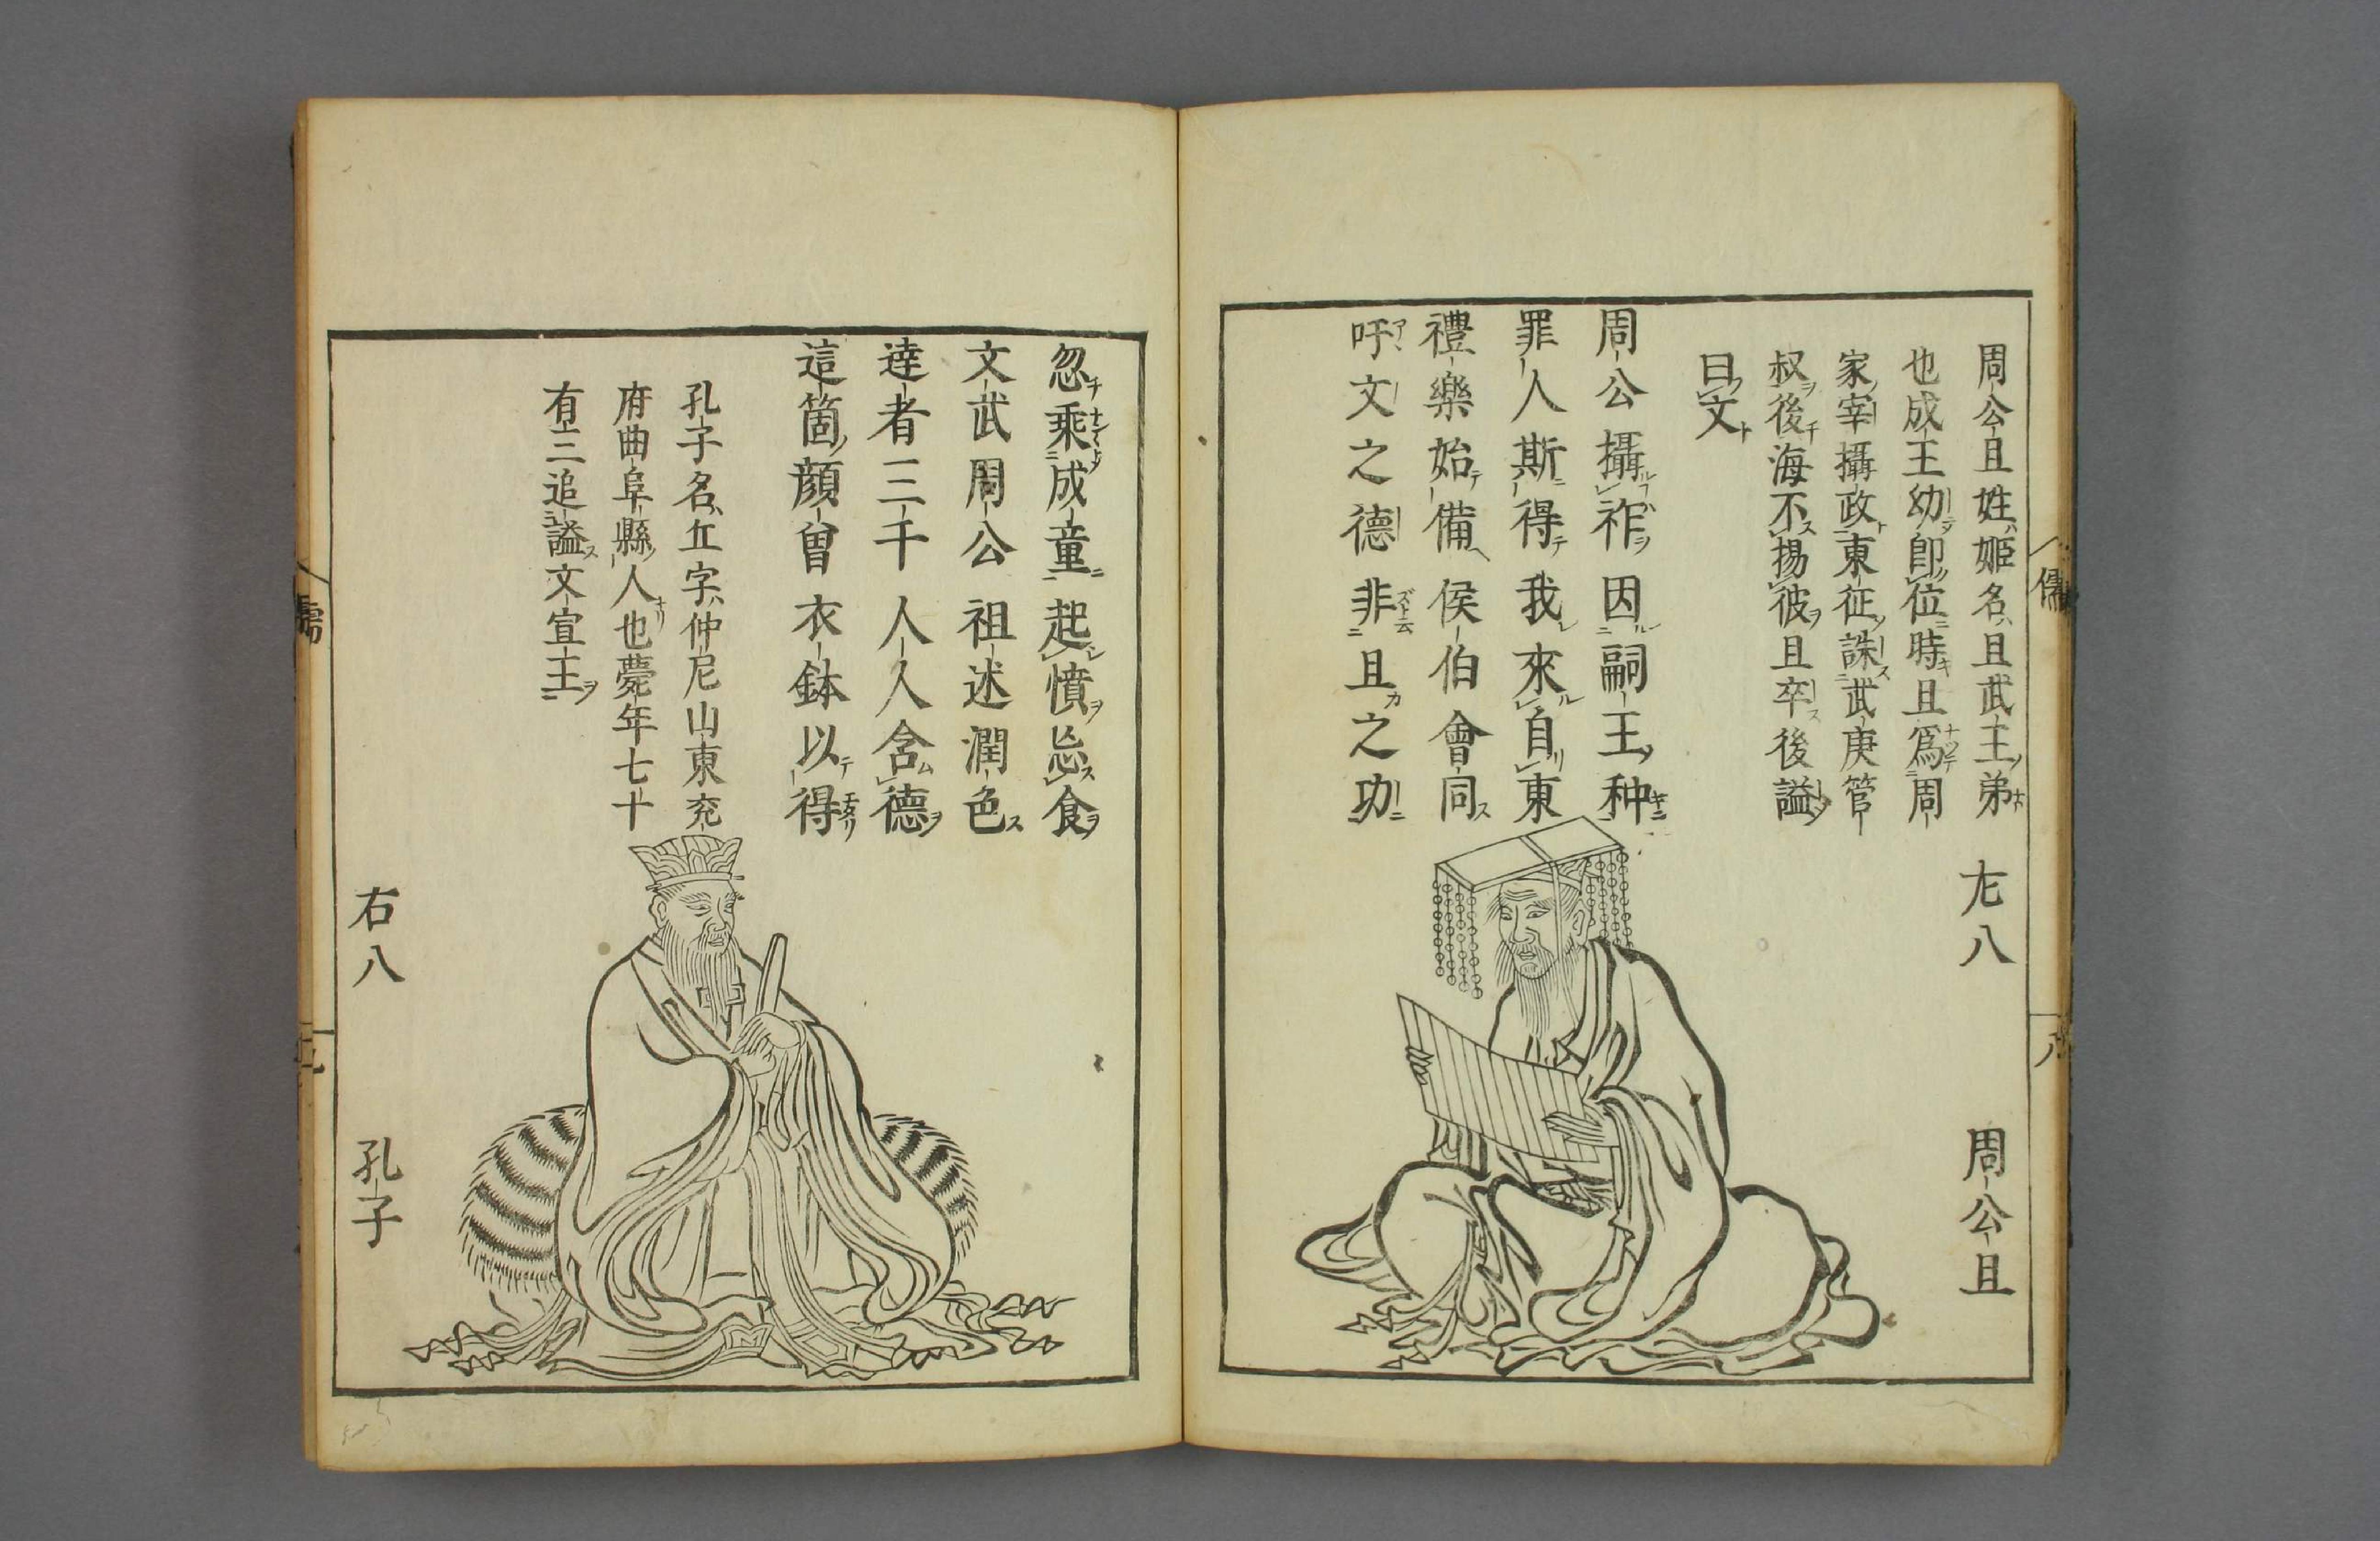 周公且姓姬名且武王弟
也成王幼即位時且爲周
家宰攝政東征誅武庚管
叔後海不揚彼且卒後謚
曰文
周公攝祚因嗣王种
罪人斯得我來自東
禮樂始備侯伯會同
吁文之德非且之功
左八
周公且
儒
八
忽乘成童起憤忘食
文武周公祖述潤色
逹者三千人人含德
這箇顔曾衣鉢以得
孔子名丘字仲尼山東兖
府曲阜縣人也薨年七十
有三追謚文宣王
右八
孔子
儒